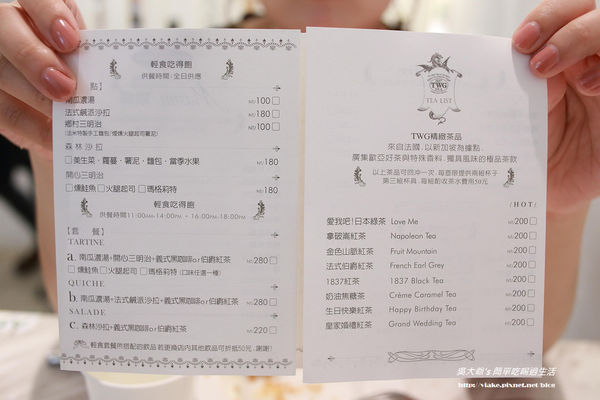 輕食吃得飽
供餐時間:全日供應
點】
南瓜濃湯 NT100□
法式鹹派沙拉 NT180□
鄉村三明治 NT100□
(法米特製手工麵包/煙燻火腿起司薯泥)
森林沙拉
□美生菜、蘿蔓、薯泥、麵包、當季水果 NT180
開心三明治
□燻鮭魚□火腿起司 □瑪格莉特 NT180
輕食吃得飽
供餐時間11:00AM-14:00PM、16:00PM-18:00PM
【套 餐】
TARTINE
a. 南瓜濃湯+開心三明治+義式黑咖啡or伯爵紅茶 NT280□
□燻鮭魚□火腿起司 □瑪格莉特(口味任選一種)
QUICHE
b. 南瓜濃湯+法式鹹派沙拉+義式黑咖啡or伯爵紅茶 NT280□
SALADE
c. 森林沙拉+義式黑咖啡or伯爵紅茶 NT220□
輕食套餐所搭配的飲品若更換店內其他飲品可折抵50元,謝謝!
TWG
TEA LIST
TWG精緻茶品
來自法國,以新加坡為據點,
廣集歐亞好茶與特殊香料,獨具風味的極品茶飲
以上茶品可回沖一次,每壺限提供兩組杯子
第三組杯具,每組酌收茶水費用50元
(HOT)
愛我吧!日本綠茶 Love Me NT200□
拿破崙紅茶 Napoleon Tea NT200□
金色山脈紅茶 Fruit Mountain NT200□
法式伯爵紅茶 French Earl Grey NT200□
1837紅茶 1837 Black Tea NT200□
奶油焦糖茶 Crème Caramel Tea NT200□
生日快樂紅茶 Happy Birthday Tea NT200□
皇家婚禮紅茶 Grand Wedding Tea NT200□
吳大爺's 簡單吃喝過生活
http://viake.pixnet.net/blog